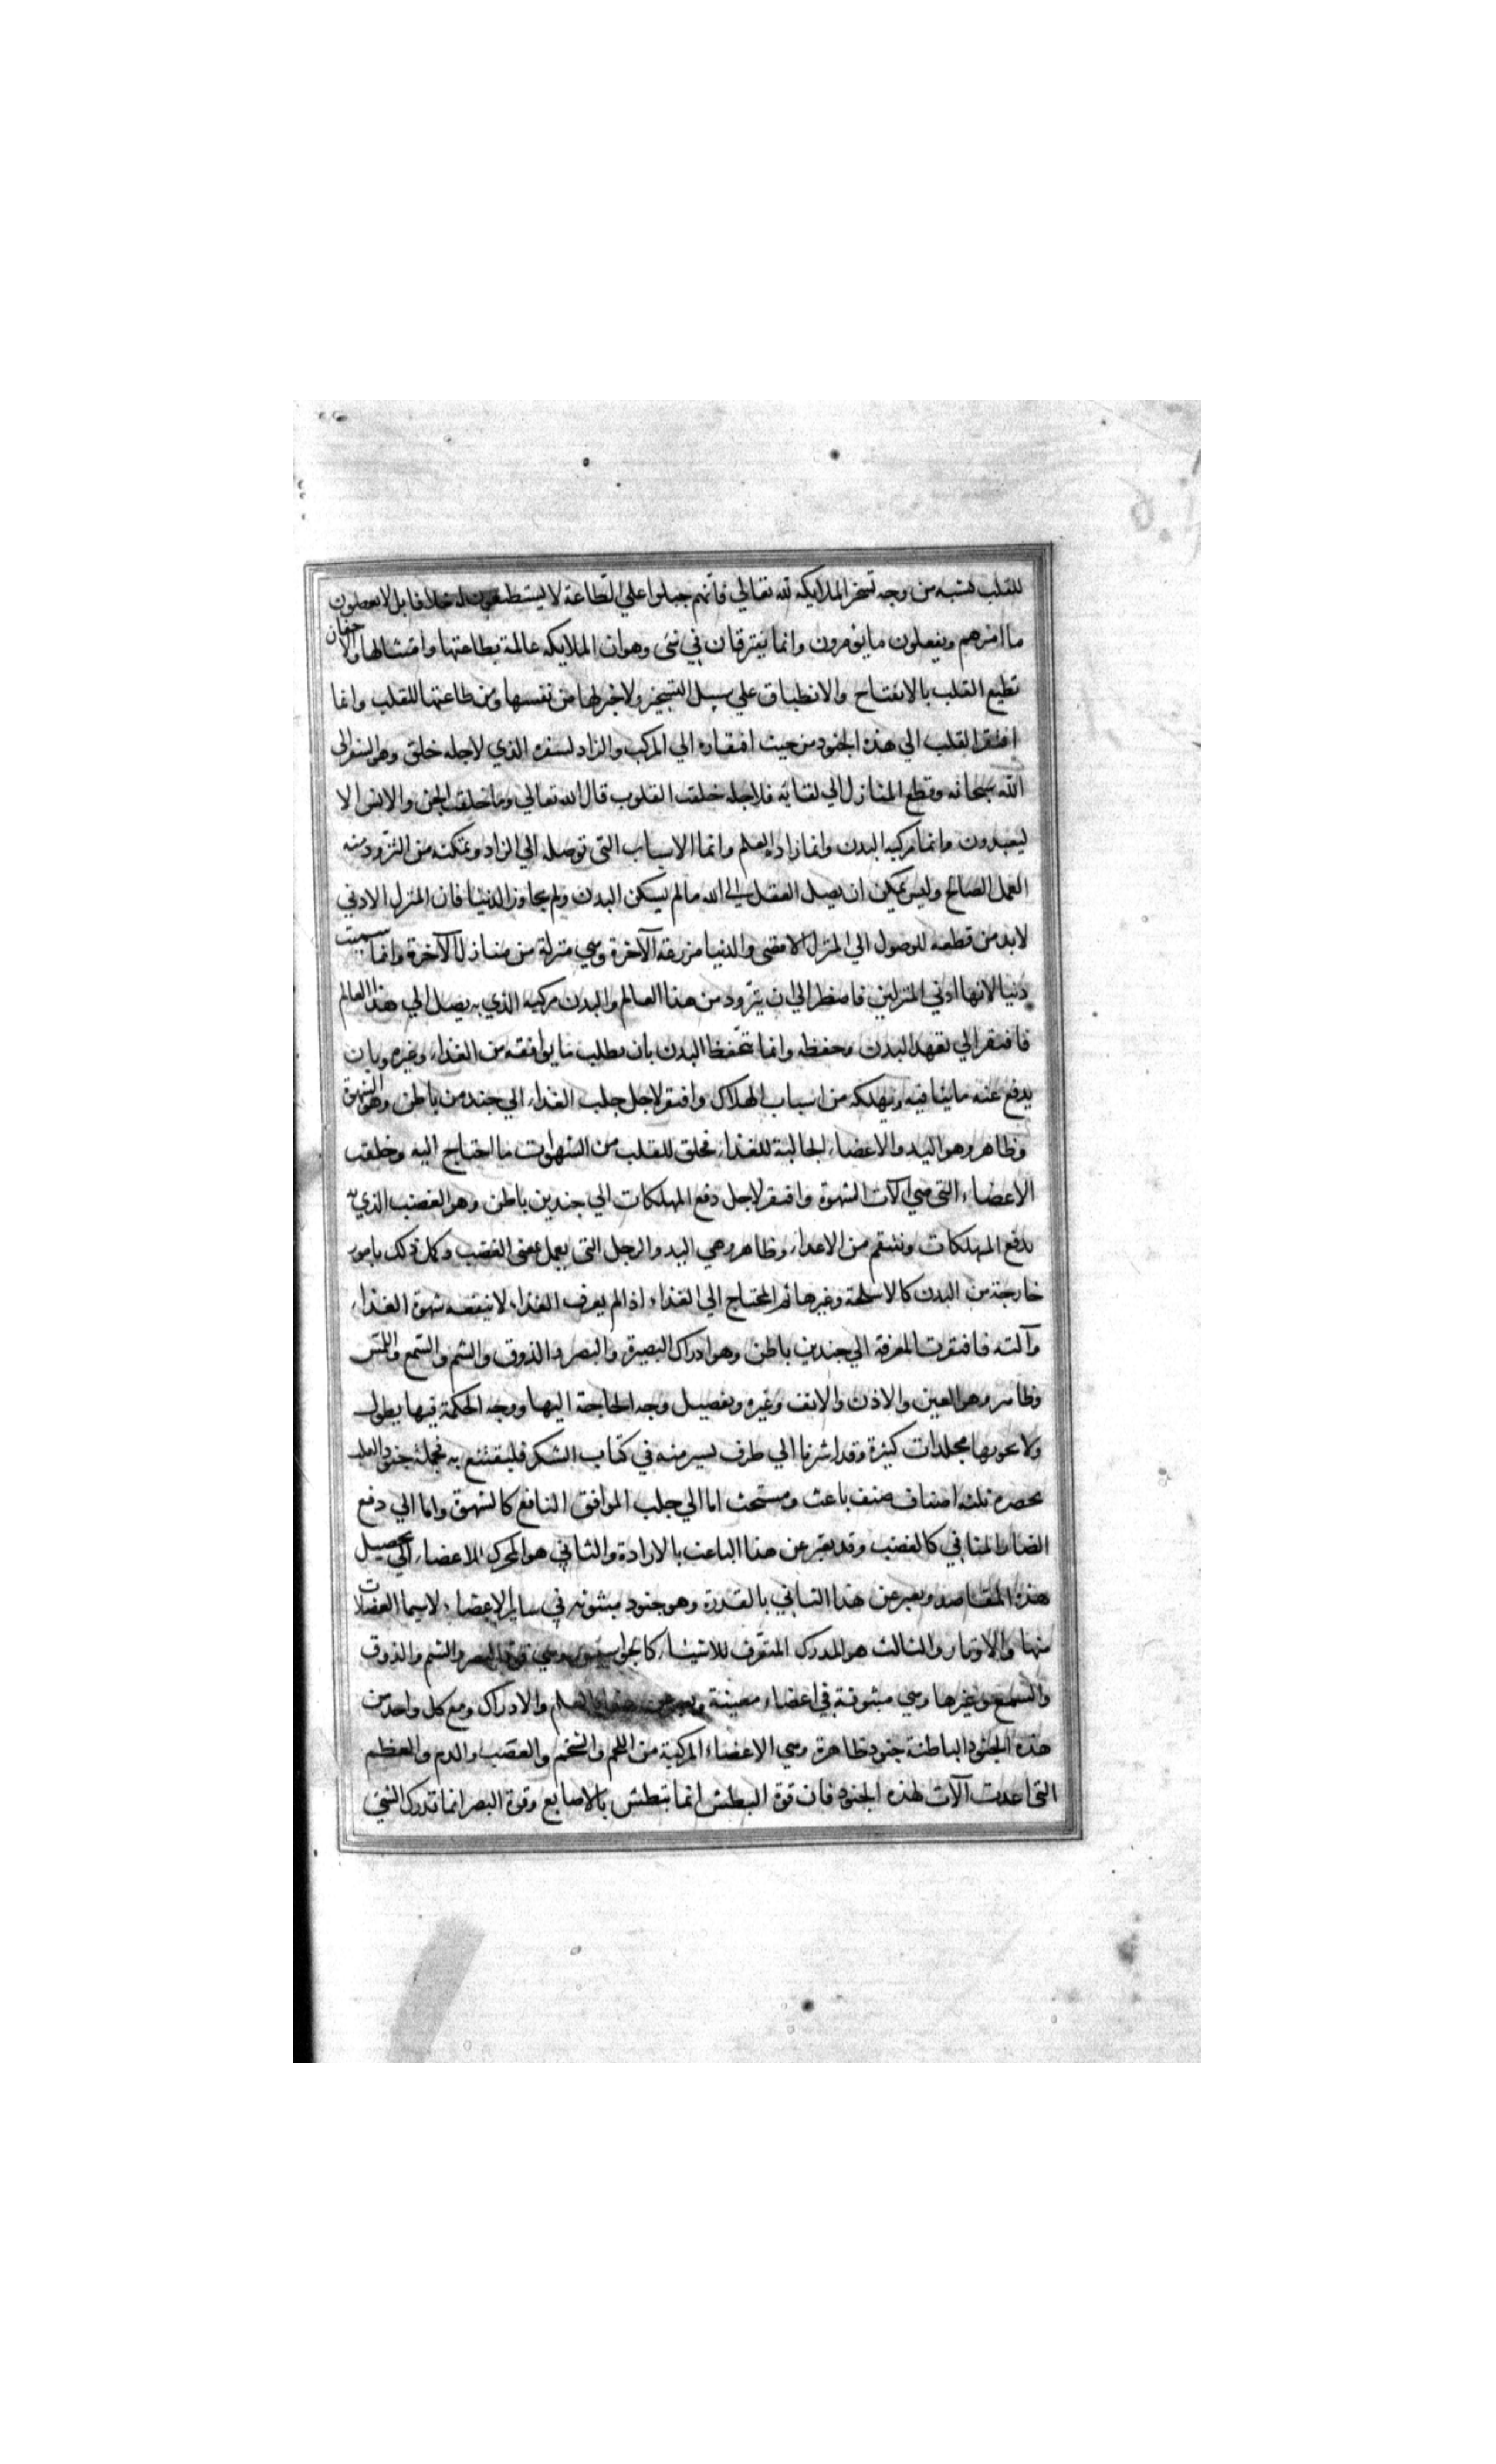 للقلب يشبه من وجه تسخر الملايكه لله تعالي فانهم جبلوا علي الطاعة لا يستطيعون له خلافا بل لا يعصلون
ما امرهم ويفعلون ما يؤمرون وانما يفترقان في شئ وهو ان الملايكه عالمة بطاعتها وامتثالها والاجفان
تطيع القلب بالانفتاح والانطباق علي سبيل التسخير ولا خبر لها من نفسها ومن طاعتها للقلب وانما
افتقر القلب الي هذه الجنود من حيث افتقاره الي المركب والزاد لسفره الذي لاجله خلق وهو السفر الي
الله سبحانه وقطع المنازل الي لقايه فلاجله خلقت القلوب قال الله تعالي وما خلقت الجن والانس الا
ليعبدون وانما مركبه البدن وانما زاده العلم وانما الاسباب التي توصله الي الزاد وتمكنه من التزود منه
العمل الصالح وليس يمكن ان يصل العقل الي الله ما لم يسكن البدن ولم يجاوز الدنيا فان المنزل الادني
لابد من قطعه للوصول الي المنزل الاقصي والدنيا مزرعة الآخرة وهي منزلة من منازل الآخرة وانما سميت
دنيا لانها ادني المنزلين فاضطر الي ان يتزود من هذا العالم والبدن مركبه الذي به يصل الي هذا العالم
فافتقر الي تعهد البدن وحفظه وانما تحفظ البدن بان يطلب ما يوافقه من الغذاء وغيره وبان
يدفع عنه ما ينافيه ويهلكه من اسباب الهلاك وافتقر لاجل جلب الغذاء الي جند من باطن وهو الشهوة
وظاهر وهو اليد والاعضاء الجالبة للغذاء فخلق للقلب من الشهوات ما احتاج اليه وخلقت
الاعضاء التي هي آلات الشهوة وافتقر لاجل دفع المهلكات الي جندين باطن وهو الغضب الذي به
يدفع المهلكات وينتقم من الاعداء وظاهر وهي اليد والرجل التي يعمل بمقتضي الغضب وكل ذلك بامور
خارجة من البدن كالاسلحة وغيرها ثم المحتاج الي الغذاء اذا لم يعرف الغذاء لا ينفعه شهوة الغذاء
وآلته فافتقرت المعرفة الي جندين باطن وهو ادراك البصيرة والبصر والذوق والشم والسمع واللمس
وظاهر وهو العين والاذن والانف وغيره وتفصيل وجه الحاجة اليها ووجه الحكمة فيها يطول
ولا يحويها مجلدات كثيرة وقد اشرنا الي طرف يسير منه في كتاب الشكر فليقتنع به فجملة جنود القلب
يحصره ثلثه اصناف صنف باعث ومستحث اما الي جلب الموافق النافع كالشهوة واما الي دفع
الضار المنافي كالغضب وقد يعبر عن هذا الباعث بالارادة والثاني هو المحرك للاعضاء الي تحصيل
هذه المقاصد ويعبر عن هذا الثاني بالقدرة وهو جنود مبثوثه في ساير الاعضاء لاسيما العضلات
منها والاوتار والثالث هو المدرك المتعرف للاشياء كالجواسيس وهي قوة البصر والشم والذوق
والسمع وغيرها وهي مبثوثة في اعضاء معينة ويعبر عن هذا بالعلم والادراك ومع كل واحد من
هذه الجنود الباطنة جنود ظاهرة وهي الاعضاء المركبة من اللحم والشحم والعصب والدم والعظم
التي اعدت آلات لهذه الجنود فان قوة البطش انما تبطش بالاصابع وقوة البصر انما تدرك الشئ